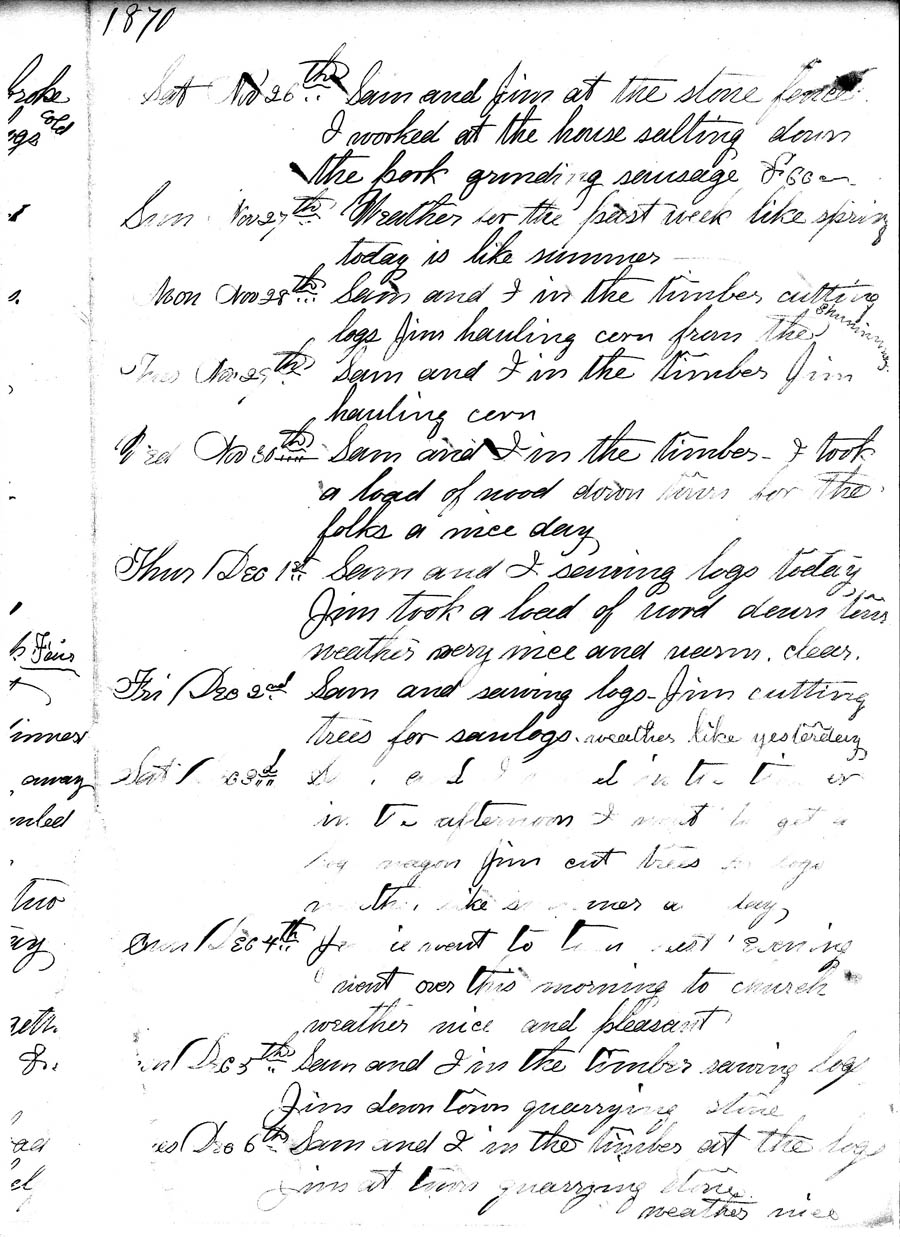 1870
Sat Nov 26th Sam and Jim at the stone fence
I worked at the house salting down
the pork grinding sausage
Sun Nov 27th Weather for the past week like spring
today is like summer
Mon Nov 28th Sam and I in the timber cutting
logs Jim hauling corn from the
Tues Nov 29th Sam and I in the timber Jim
hauling corn
Wed Nov 30th Sam and I in the timber - I took
a load of wood down town for the
folks a nice day
Thur Dec 1st Sam and I sawing logs today
Jim took a load of wood down town
weather very nice and warm. clear.
Fri Dec 2nd Sam and sawing logs - Jim cutting
trees for sawlogs. weather like yesterday
Sat Dec 3rd and I in the timber
in the afternoon I went to get a
log wagon Jim cut trees for logs
weather like summer a day
Sun Dec 4th went to town last evening
I went over this morning to church
weather nice and pleasant
Mon Dec 5th Sam and I in the timber sawing logs
Jim down town quarrying stone
Tues Dec 6th Sam and I in the timber at the logs
Jim at town quarrying stone
weather nice
broke
cold
Fair
away
two
&.